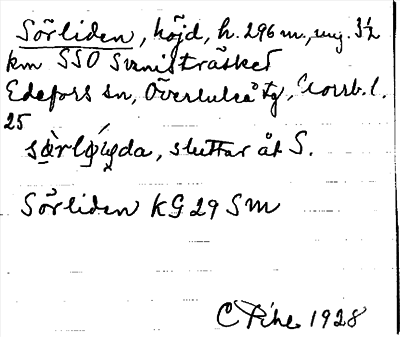 Sörliden, höjd, h. 296 m., ung. 3½
km SSO Svanisträsket
Edefors sn, Överluleå tg, Norrb. l.
25
sluttar åt S.
Sörliden KG 29 SM
C Pihe 1928